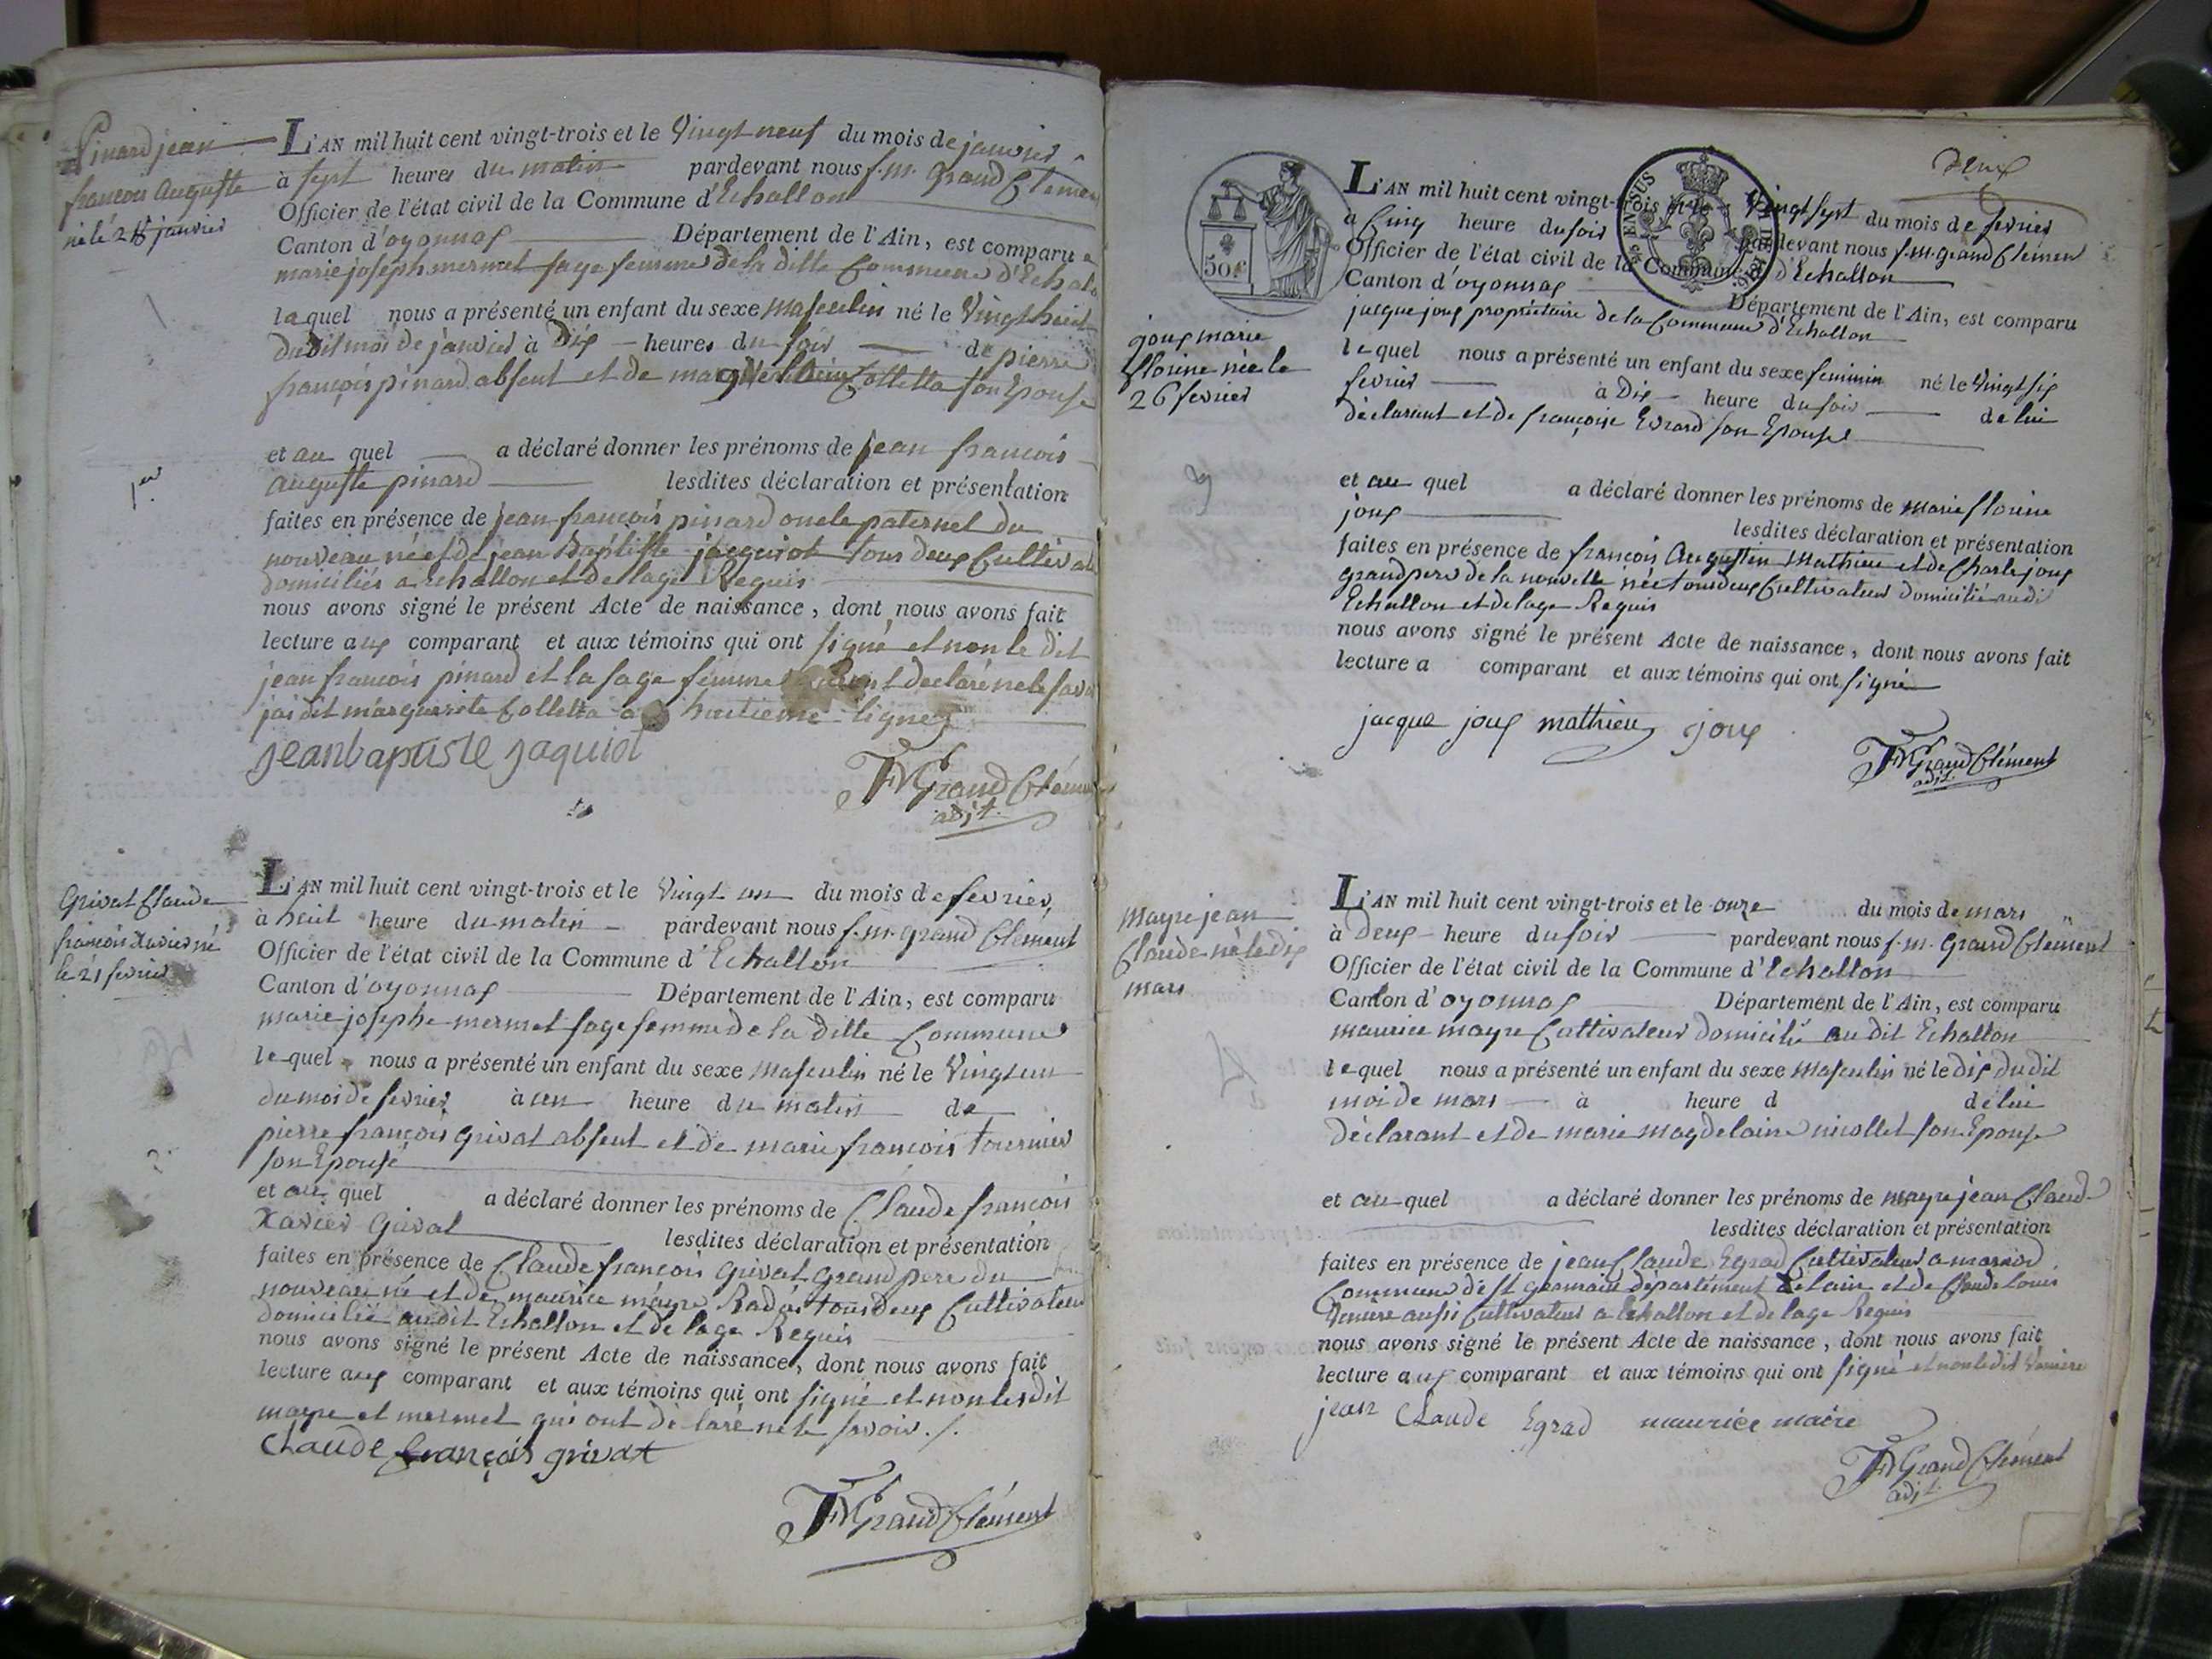 Pinard jean
francois Auguste
né le 28 janvier
L'AN mil huit cent vingt-trois et le Vingt neuf du mois de janvier
à sept heures du matin pardevant nous f. m. Grand Clémen
Officier de l'état civil de la Commune d'Echallon
Canton d'oyonnax Département de l'Ain, est comparu e
marie joseph mermet sage femme de la ditte Commune d'Echalo
laquel nous a présenté un enfant du sexe masculin né le Vingt huit
du dit moi de janvier à Dix heures du soir de pierre
françois pinard absent et de Colletta son Epouse
1er
et au quel a déclaré donner les prénoms de jean francois
auguste pinard lesdites déclaration et présentation
faites en présence de jean françois pinard oncle paternel du
nouveau né et de jean Baptiste jacquiot tous deux Cultivat
domiciliés a Echallon et de lage Requis
nous avons signé le présent Acte de naissance, dont nous avons fait
lecture aux comparant et aux témoins qui ont signé et non le dit
jean francois pinard et la sage femme ont déclaré ne le savoi
jai dit marguerite Colletta a huitieme ligne
jeanbaptiste jaquiot
FMGrand Clément
adjt.
Grivat Claude
francois Xavier né
le 21 fevrier
L'AN mil huit cent vingt-trois et le Vingt un du mois de fevrier
à huit heure du matin pardevant nous f. m. grand Clement
Officier de l'état civil de la Commune d'Echallon
Canton d'oyonnax Département de l'Ain, est comparu
marie josephe mermet sage femme de la ditte Commune
lequel nous a présenté un enfant du sexe masculin né le Vingt un
du moi de fevrier à un heure du matin de
pierre françois Grivat absent et de marie francois tournier
son Epouse
et au quel a déclaré donner les prénoms de Claude francois
Xavier Grivat lesdites déclaration et présentation
faites en présence de Claude francois Grivat Grand pere du
nouveau né et de maurice mayre tous deux Cultivateur
domicilié audit Echallon et de lage Requis
nous avons signé le présent Acte de naissance, dont nous avons fait
lecture aux comparant et aux témoins qui ont signé et non lesdit
mayre et mermet qui ont déclaré ne le savoir ./.
Claude françois grivat
FMGrand Clément
deux
50c
joux marie
florine née le
26 fevrier
L'AN mil huit cent vingt-trois et le Vingt sept du mois de fevrier
à Cinq heure du soir pardevant nous f. m. grand Clément
Officier de l'état civil de la Commune d'Echallon
Canton d'oyonnax Département de l'Ain, est comparu
jacque joux propriétaire de la Commune d'Echallon
lequel nous a présenté un enfant du sexe feminin né le Vingt six
fevrier à Dix heure du soir de lui
déclarant et de françoise Evrard son Epouse
et au quel a déclaré donner les prénoms de marie florine
joux lesdites déclaration et présentation
faites en présence de françois Augustin Mathieu et de Charle joux
grand pere de la nouvelle née tous deux Cultivateur domicilié audi
Echallon et de lage Requis
nous avons signé le présent Acte de naissance, dont nous avons fait
lecture a comparant et aux témoins qui ont signé
jacque joux mathieu joux
FMGrand Clément
adjt.
mayre jean
Claude né le dix
mars
L'AN mil huit cent vingt-trois et le onze du mois de mars
à Deux heure du soir pardevant nous f. m. Grand Clément
Officier de l'état civil de la Commune d'Echallon
Canton d'oyonnax Département de l'Ain, est comparu
maurice mayre Cultivateur domicilié au dit Echallon
lequel nous a présenté un enfant du sexe Masculin né le dix du dit
moi de mars à heure d de lui
déclarant et de marie magdelaine nicollet son Epouse
et au quel a déclaré donner les prénoms de mayre jean Claude
lesdites déclaration et présentation
faites en présence de jean Claude Egrad Cultivateur a marnod
Commune de st germain département de lain et de Claude louis
aussi Cultivateur a Echallon et de lage Requis
nous avons signé le présent Acte de naissance, dont nous avons fait
lecture aux comparant et aux témoins qui ont signé et non ledit
jean Claude Egrad maurice maire
FMGrand Clément
adjt.